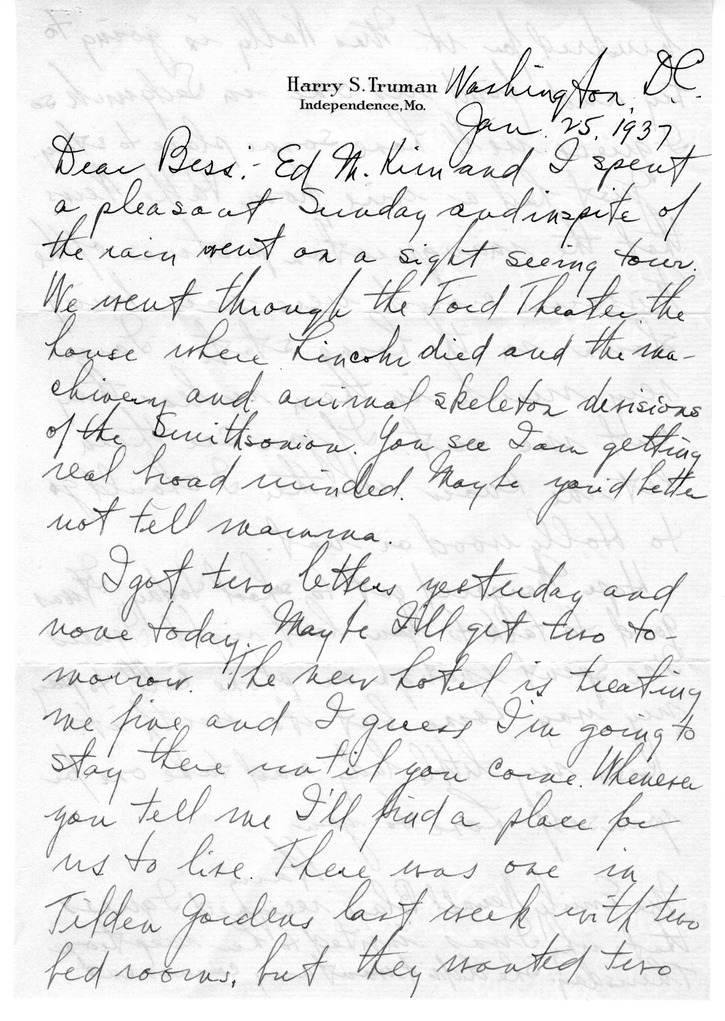 Harry S. Truman
Independence, Mo.
Washington, D.C.
Jan. 25, 1937
Dear Bess:- Ed M. Kim and I spent
a pleasant Sunday and inspite of
the rain went on a sight seeing tour.
We went through the Ford Theater the
house where Lincoln died and the ma-
chinery and animal skeleton devisions
of the Smithsonian. You see I am getting
real broad minded. Maybe you'd better
not tell mamma.
I got two letters yesterday and
none today. Maybe I'll get two to-
morrow. The new hotel is treating
me fine and I guess I'm going to
stay there until you come. Whenever
you tell me I'll find a place for
us to live. There was one in
Tilden Gardens last week with two
bed rooms, but they wanted two